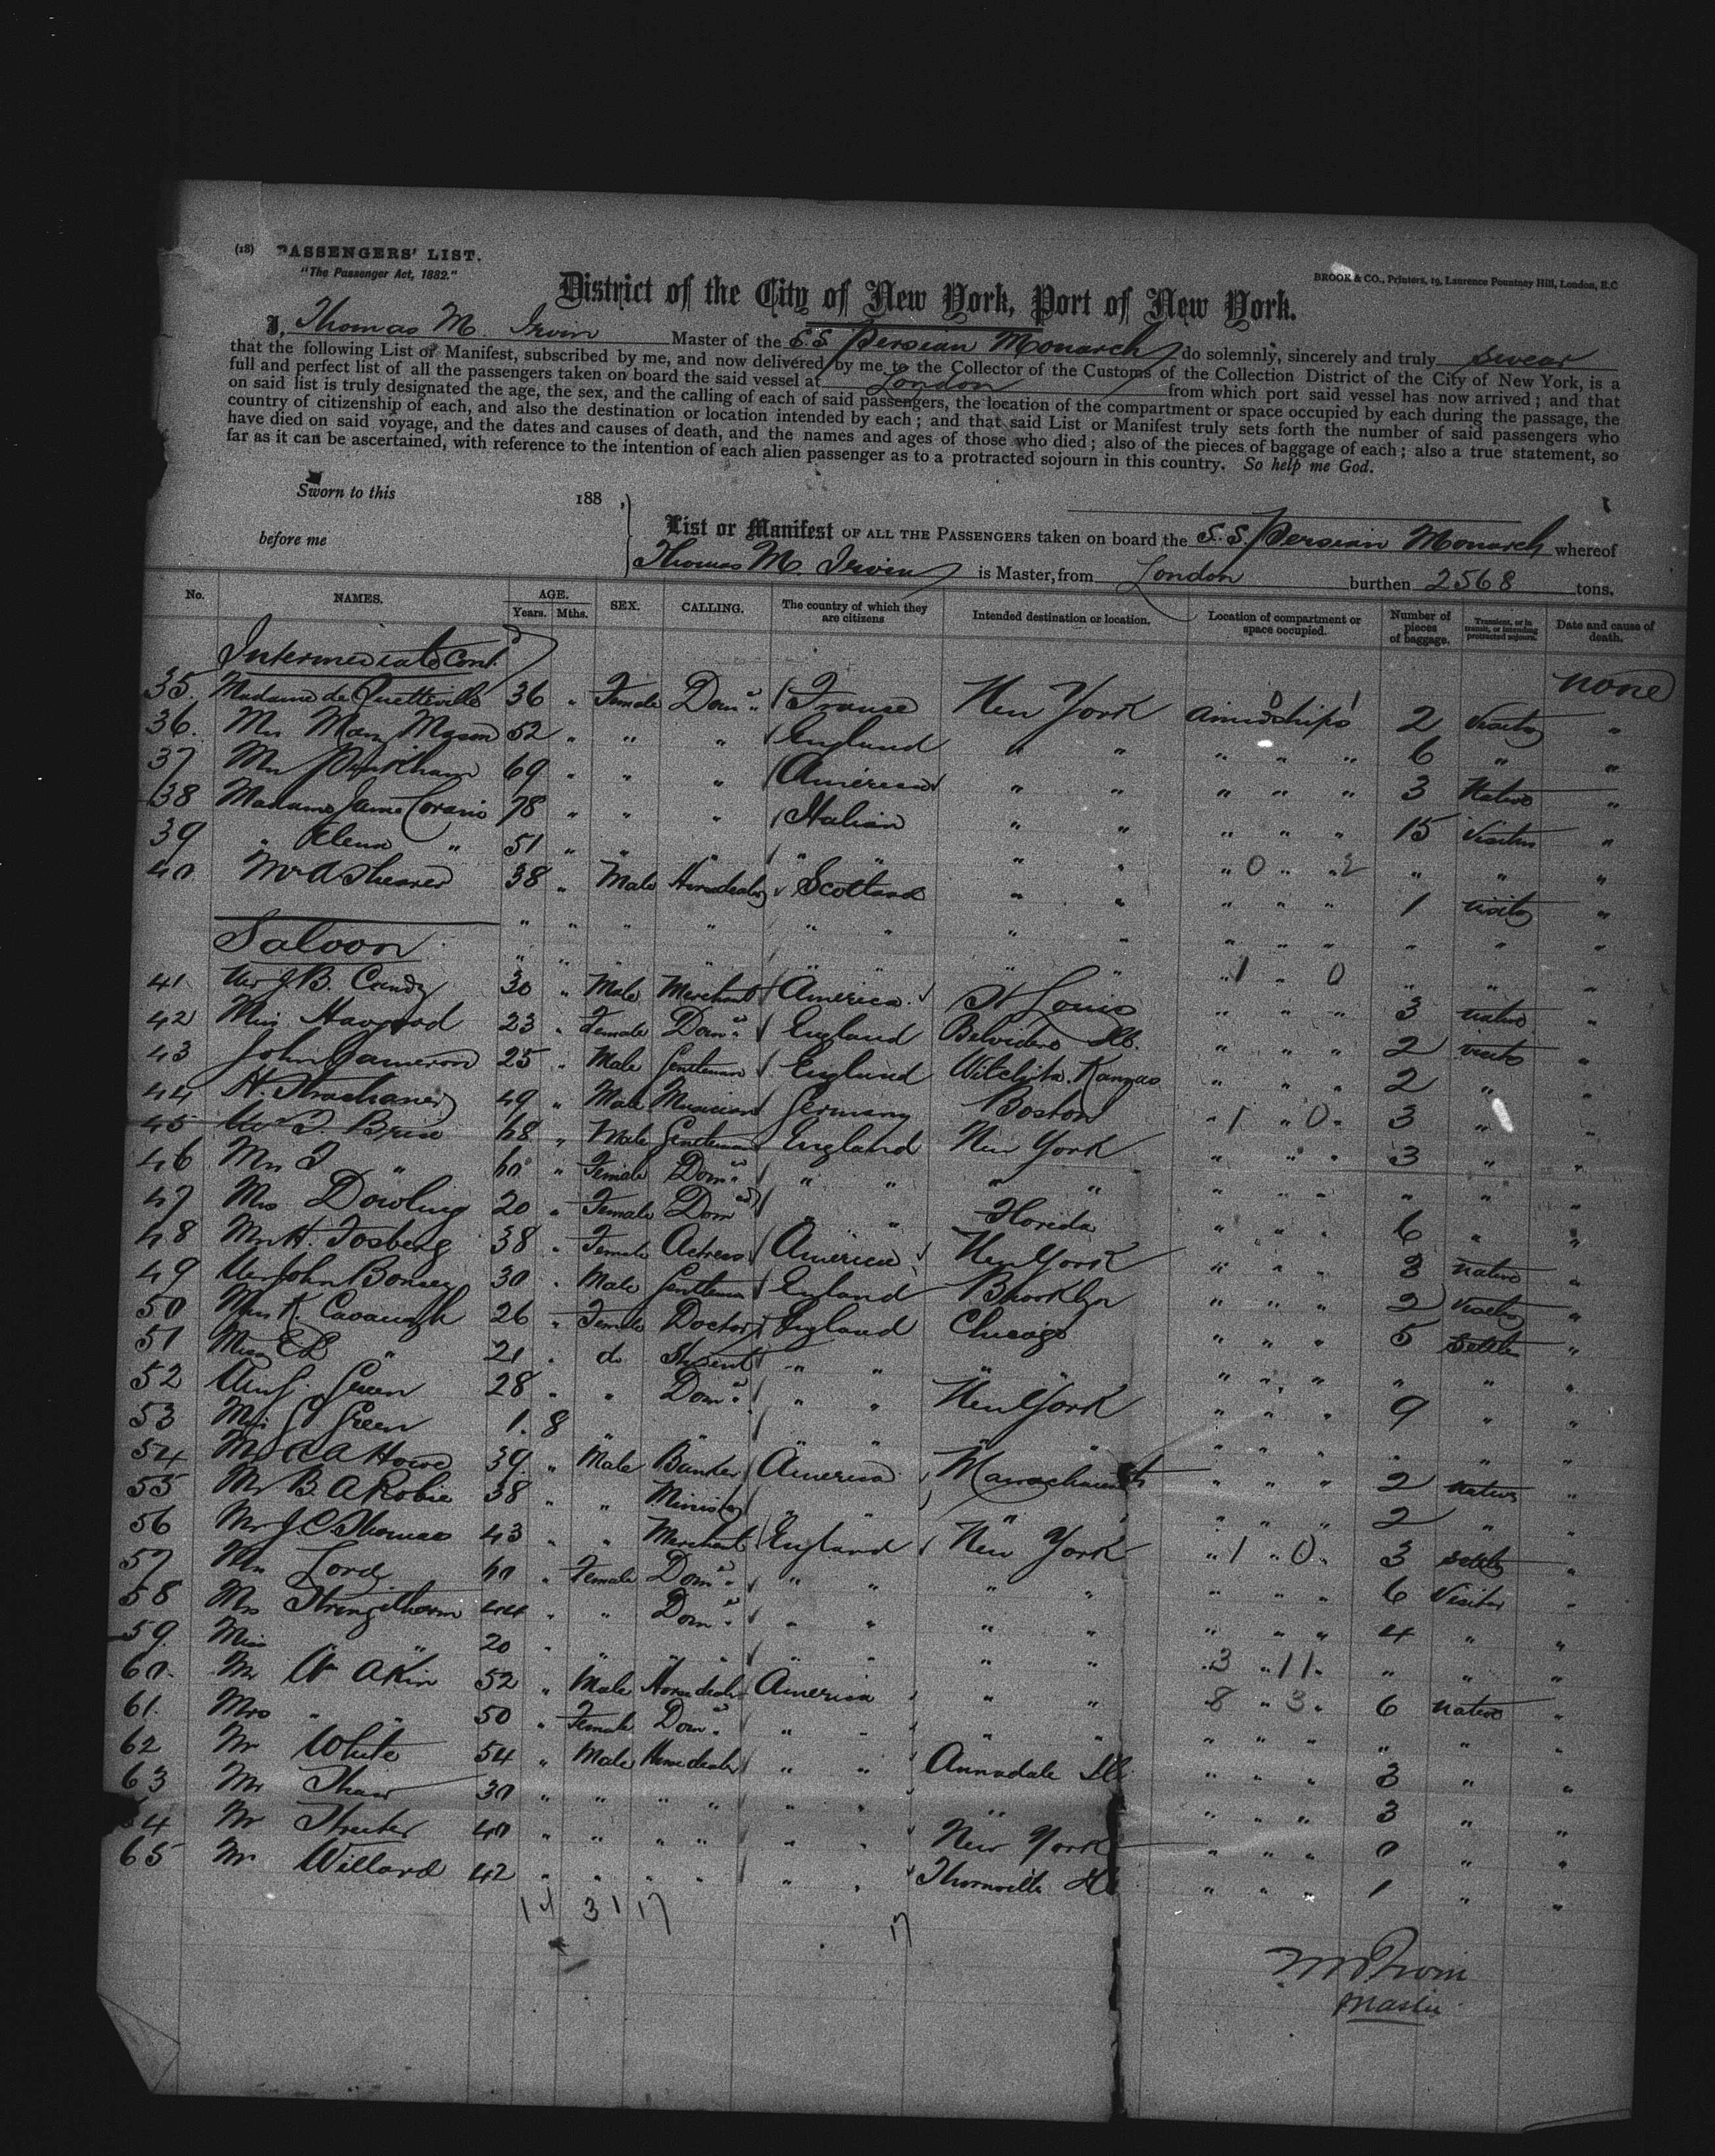 (18) PASSENGERS' LIST.
"The Passenger Act, 1882."
BROOK & CO., Printers, 19, Laurence Pountney Hill, London, E.C
District of the City of New York, Port of New York.
I, Thomas M. Irvin Master of the S.S. Persian Monarch do solemnly, sincerely and truly swear
that the following List or Manifest, subscribed by me, and now delivered by me to the Collector of the Customs of the Collection District of the City of New York, is a
full and perfect list of all the passengers taken on board the said vessel at London from which port said vessel has now arrived; and that
on said list is truly designated the age, the sex, and the calling of each of said passengers, the location of the compartment or space occupied by each during the passage, the
country of citizenship of each, and also the destination or location intended by each; and that said List or Manifest truly sets forth the number of said passengers who
have died on said voyage, and the dates and causes of death, and the names and ages of those who died; also of the pieces of baggage of each; also a true statement, so
far as it can be ascertained, with reference to the intention of each alien passenger as to a protracted sojourn in this country. So help me God.
Sworn to this 188
before me
List or Manifest OF ALL THE PASSENGERS taken on board the S.S. Persian Monarch whereof
Thomas M. Irvin is Master, from London burthen 2568 tons.
No. NAMES. AGE. Years. Mths. SEX. CALLING. The country of which they are citizens Intended destination or location. Location of compartment or space occupied. Number of pieces of baggage. Transient, or in transit, or intending protracted sojourn. Date and cause of death.
Intermediate Cont.
none
35. Madame de Quetteville 36 " Female Dom. France New York Amidships 2 Visitor "
36. Mrs Mary Mason 52 " " " England " " " " " 6 " "
37 Mrs 69 " " " American " " " " " 3 Native "
38 Madame Jane 78 " " " Italian " " " " " 15 Visitor "
39 " Elena " 51 " " " " " " " " 0 " " 2 " " "
40 Mr A Shearer 38 " Male Horsedealer Scotland " " " " " 1 visitor "
Saloon
" 1 " 0
41 Mr J B. Candy 30 " Male Merchant America St Louis " " " 3 native "
42 Miss 23 " Female Dom. England Belvidere Ill. " " " 2 visitor "
43 John Cameron 25 " Male Gentleman England Witchita Kansas " " " 2 " "
44 H. 49 " Male Musician Germany Boston " 1 " 0 " 3 " "
45 Mr J Brise 68 " Male Gentleman England New York " " " 3 " "
46 Mrs J " 60 " Female Dom. " " " " " " " " " "
47 Mrs Dowling 20 " Female Dom " " Florida " " " 6 " "
48 Mrs H. Fosberg 38 " Female Actress America New York " " " 3 native "
49 Mr John 30 " Male Gentleman England Brooklyn " " " 2 visitor "
50 K. Cavanagh 26 " Female Doctor England Chicago " " " 5 settler "
51 Miss E L " 21 " do Student " " " " " " " " " "
52 Green 28 " " Dom. " " New York " " " 9 " "
53 Miss G Green 1. 8 " " " " " " " " " " " "
54 Mr A A Howe 39 " Male Banker America Massachusetts " " " 2 native "
55 Mr B. A Robie 38 " " Minister " " " " " 2 " "
56 Mr J C Thomas 43 " " Merchant England New York " 1 " 0 " 3 settler "
57 Mrs Lord 60 " Female Dom. " " " " " " " 6 Visitor "
58 Mrs 44 " " Dom. " " " " " " " 4 " "
59 Miss " 20 " " " " " " " 3 " 11 " " " "
60. Mr W Akin 52 " Male Horsedealer America " " 8 " 3 " 6 native "
61. Mrs " " 50 " Female Dom. " " " " " " " " " "
62 Mr White 54 " Male Horsedealer " " Annadale Ill " " " 3 " "
63 Mr Shaw 30 " " " " " " " " " " " 3 " "
64 Mr 40 " " " " " " New York " " " 0 " "
65 Mr Willard 42 " " " " " " Thornville Ill " " " 1 " "
14 31 17 17
Irvin
Master